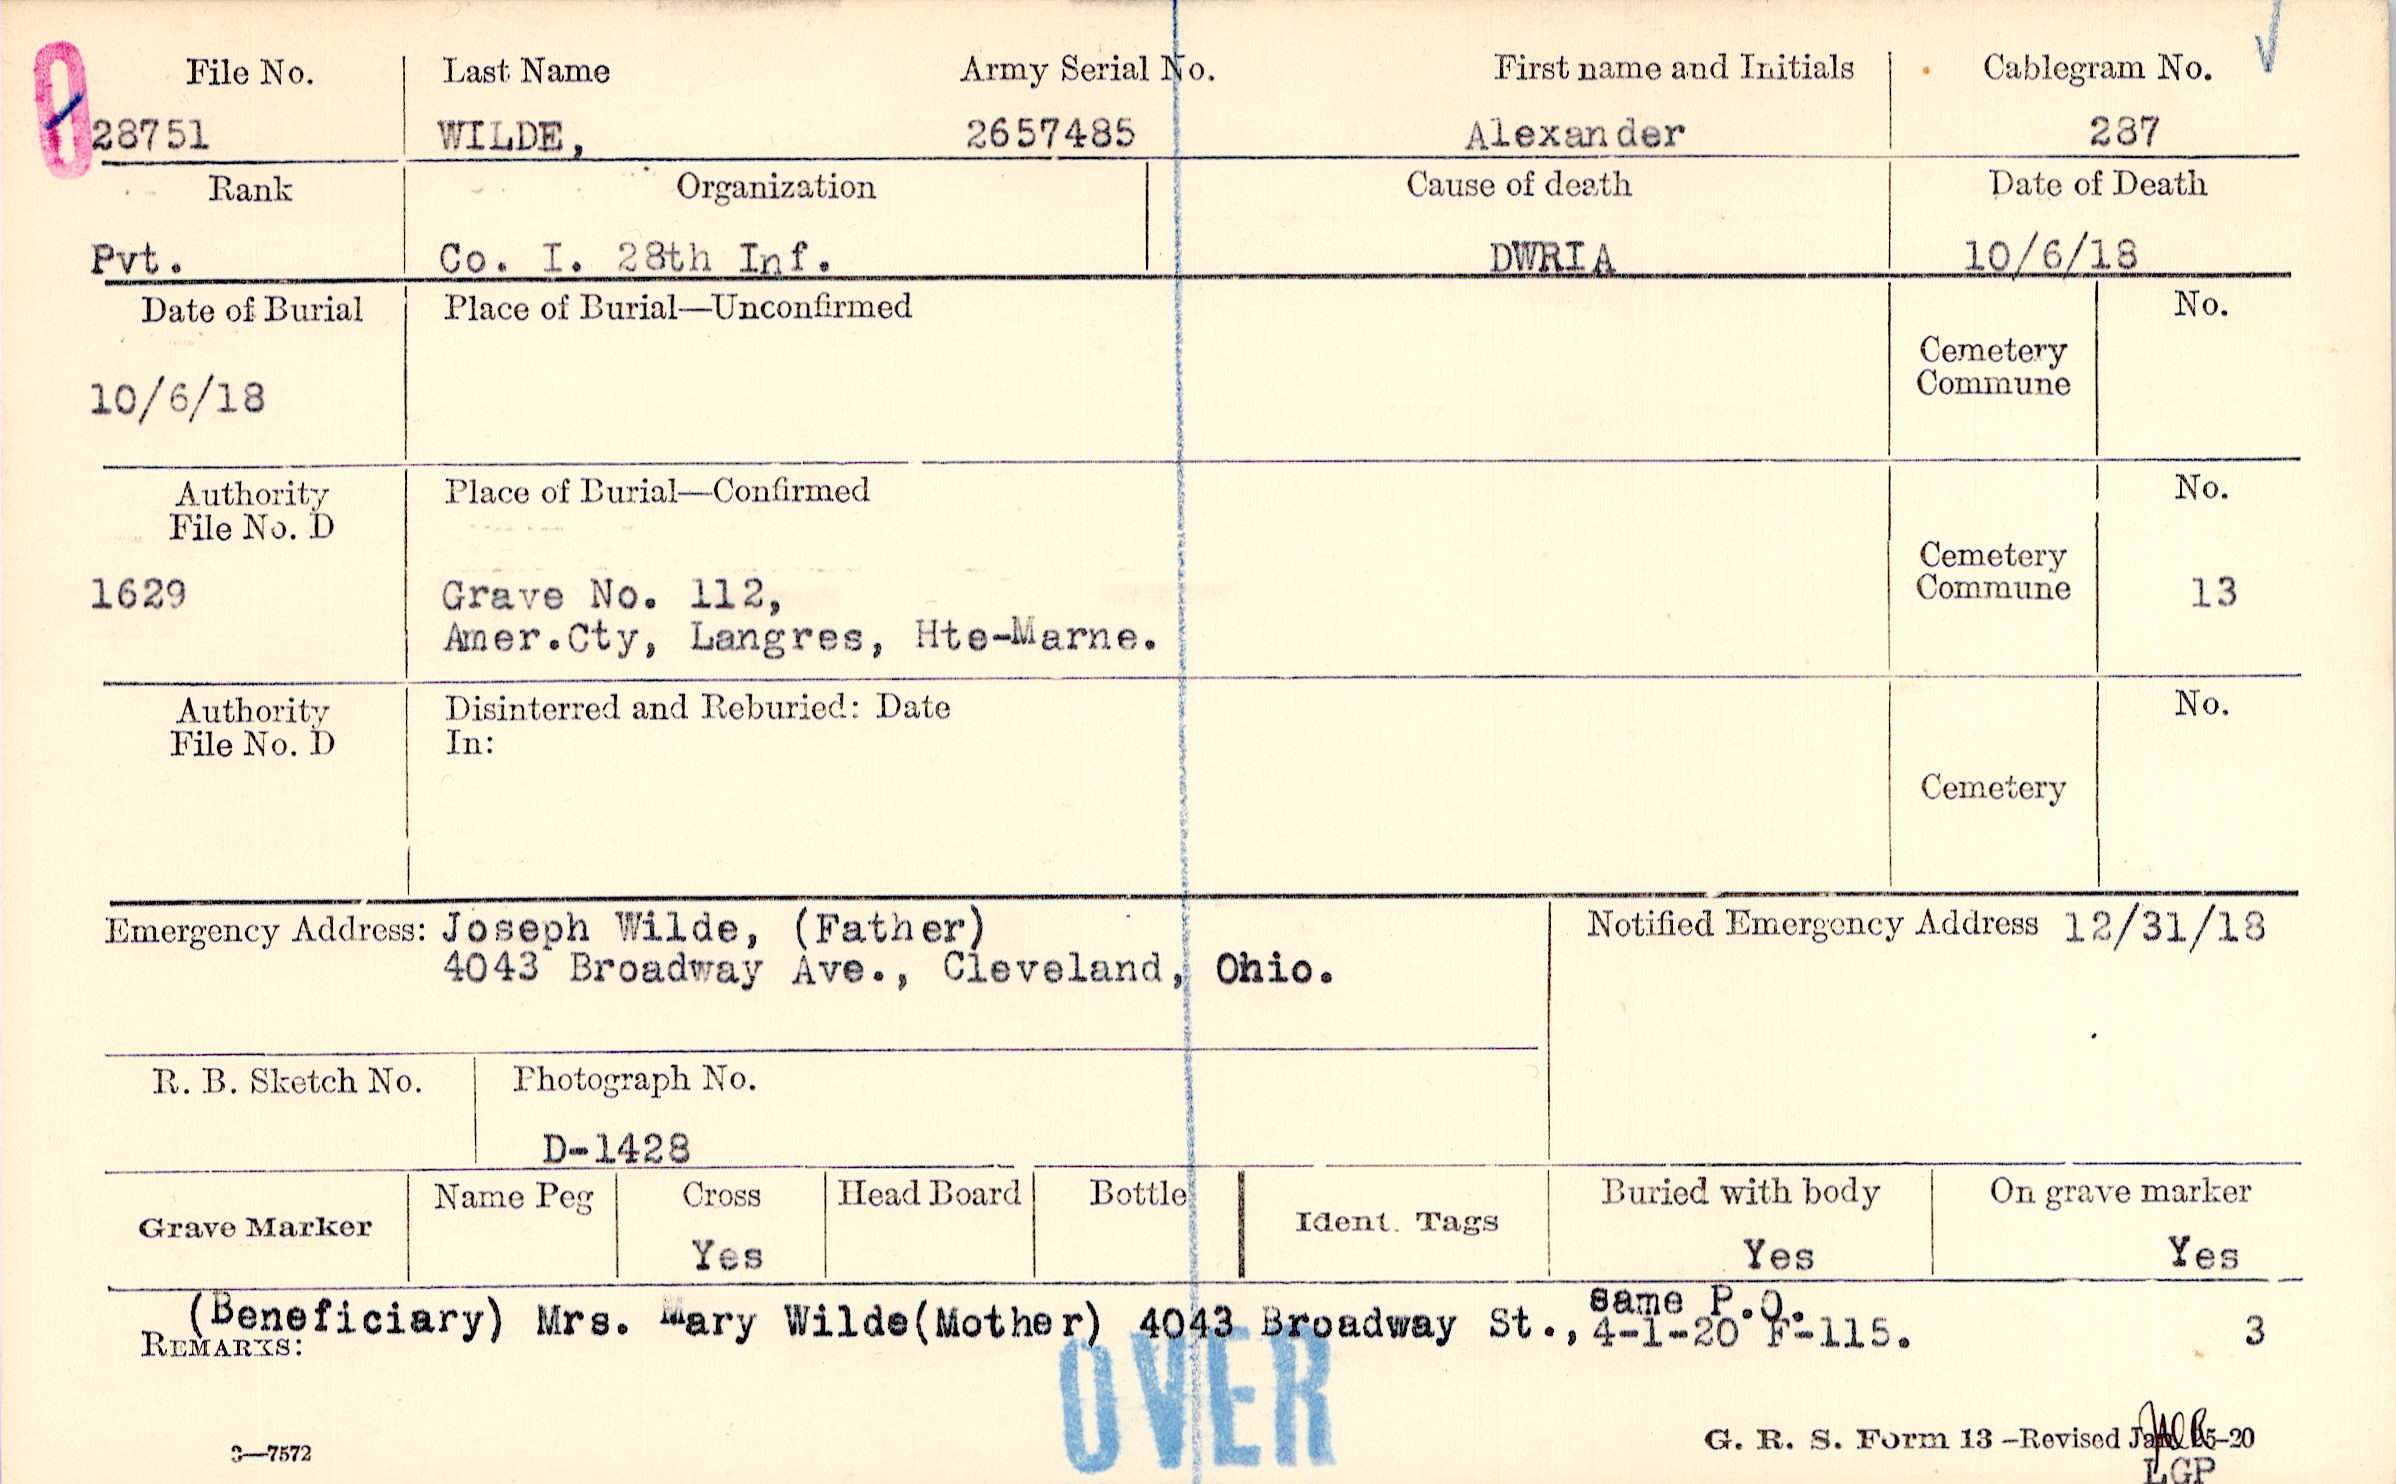 0
File No. Last Name Army Serial No. First name and Initials Cablegram No.
28751 WILDE, 2657485 Alexander 287
Rank Organization Cause of death Date of Death
Pvt. Co. I. 28th Inf. DWRIA 10/6/18
Date of Burial Place of Burial—Unconfirmed No.
Cemetery
Commune
10/6/18
Authority Place of Burial—Confirmed No.
File No. D
Cemetery
1629 Grave No. 112, Commune 13
Amer.Cty, Langres, Hte-Marne.
Authority Disinterred and Reburied: Date No.
File No. D In:
Cemetery
Emergency Address: Joseph Wilde, (Father) Notified Emergency Address 12/31/18
4043 Broadway Ave., Cleveland, Ohio.
R. B. Sketch No. Photograph No.
D-1428
Name Peg Cross Head Board Bottle Buried with body On grave marker
Grave Marker Ident. Tags
Yes Yes Yes
same P.O.
(Beneficiary) Mrs. Mary Wilde(Mother) 4043 Broadway St., 4-1-20 F-115. 3
REMARKS:
OVER
3—7572 G. R. S. Form 13 -Revised Jan. 25-20
LGP